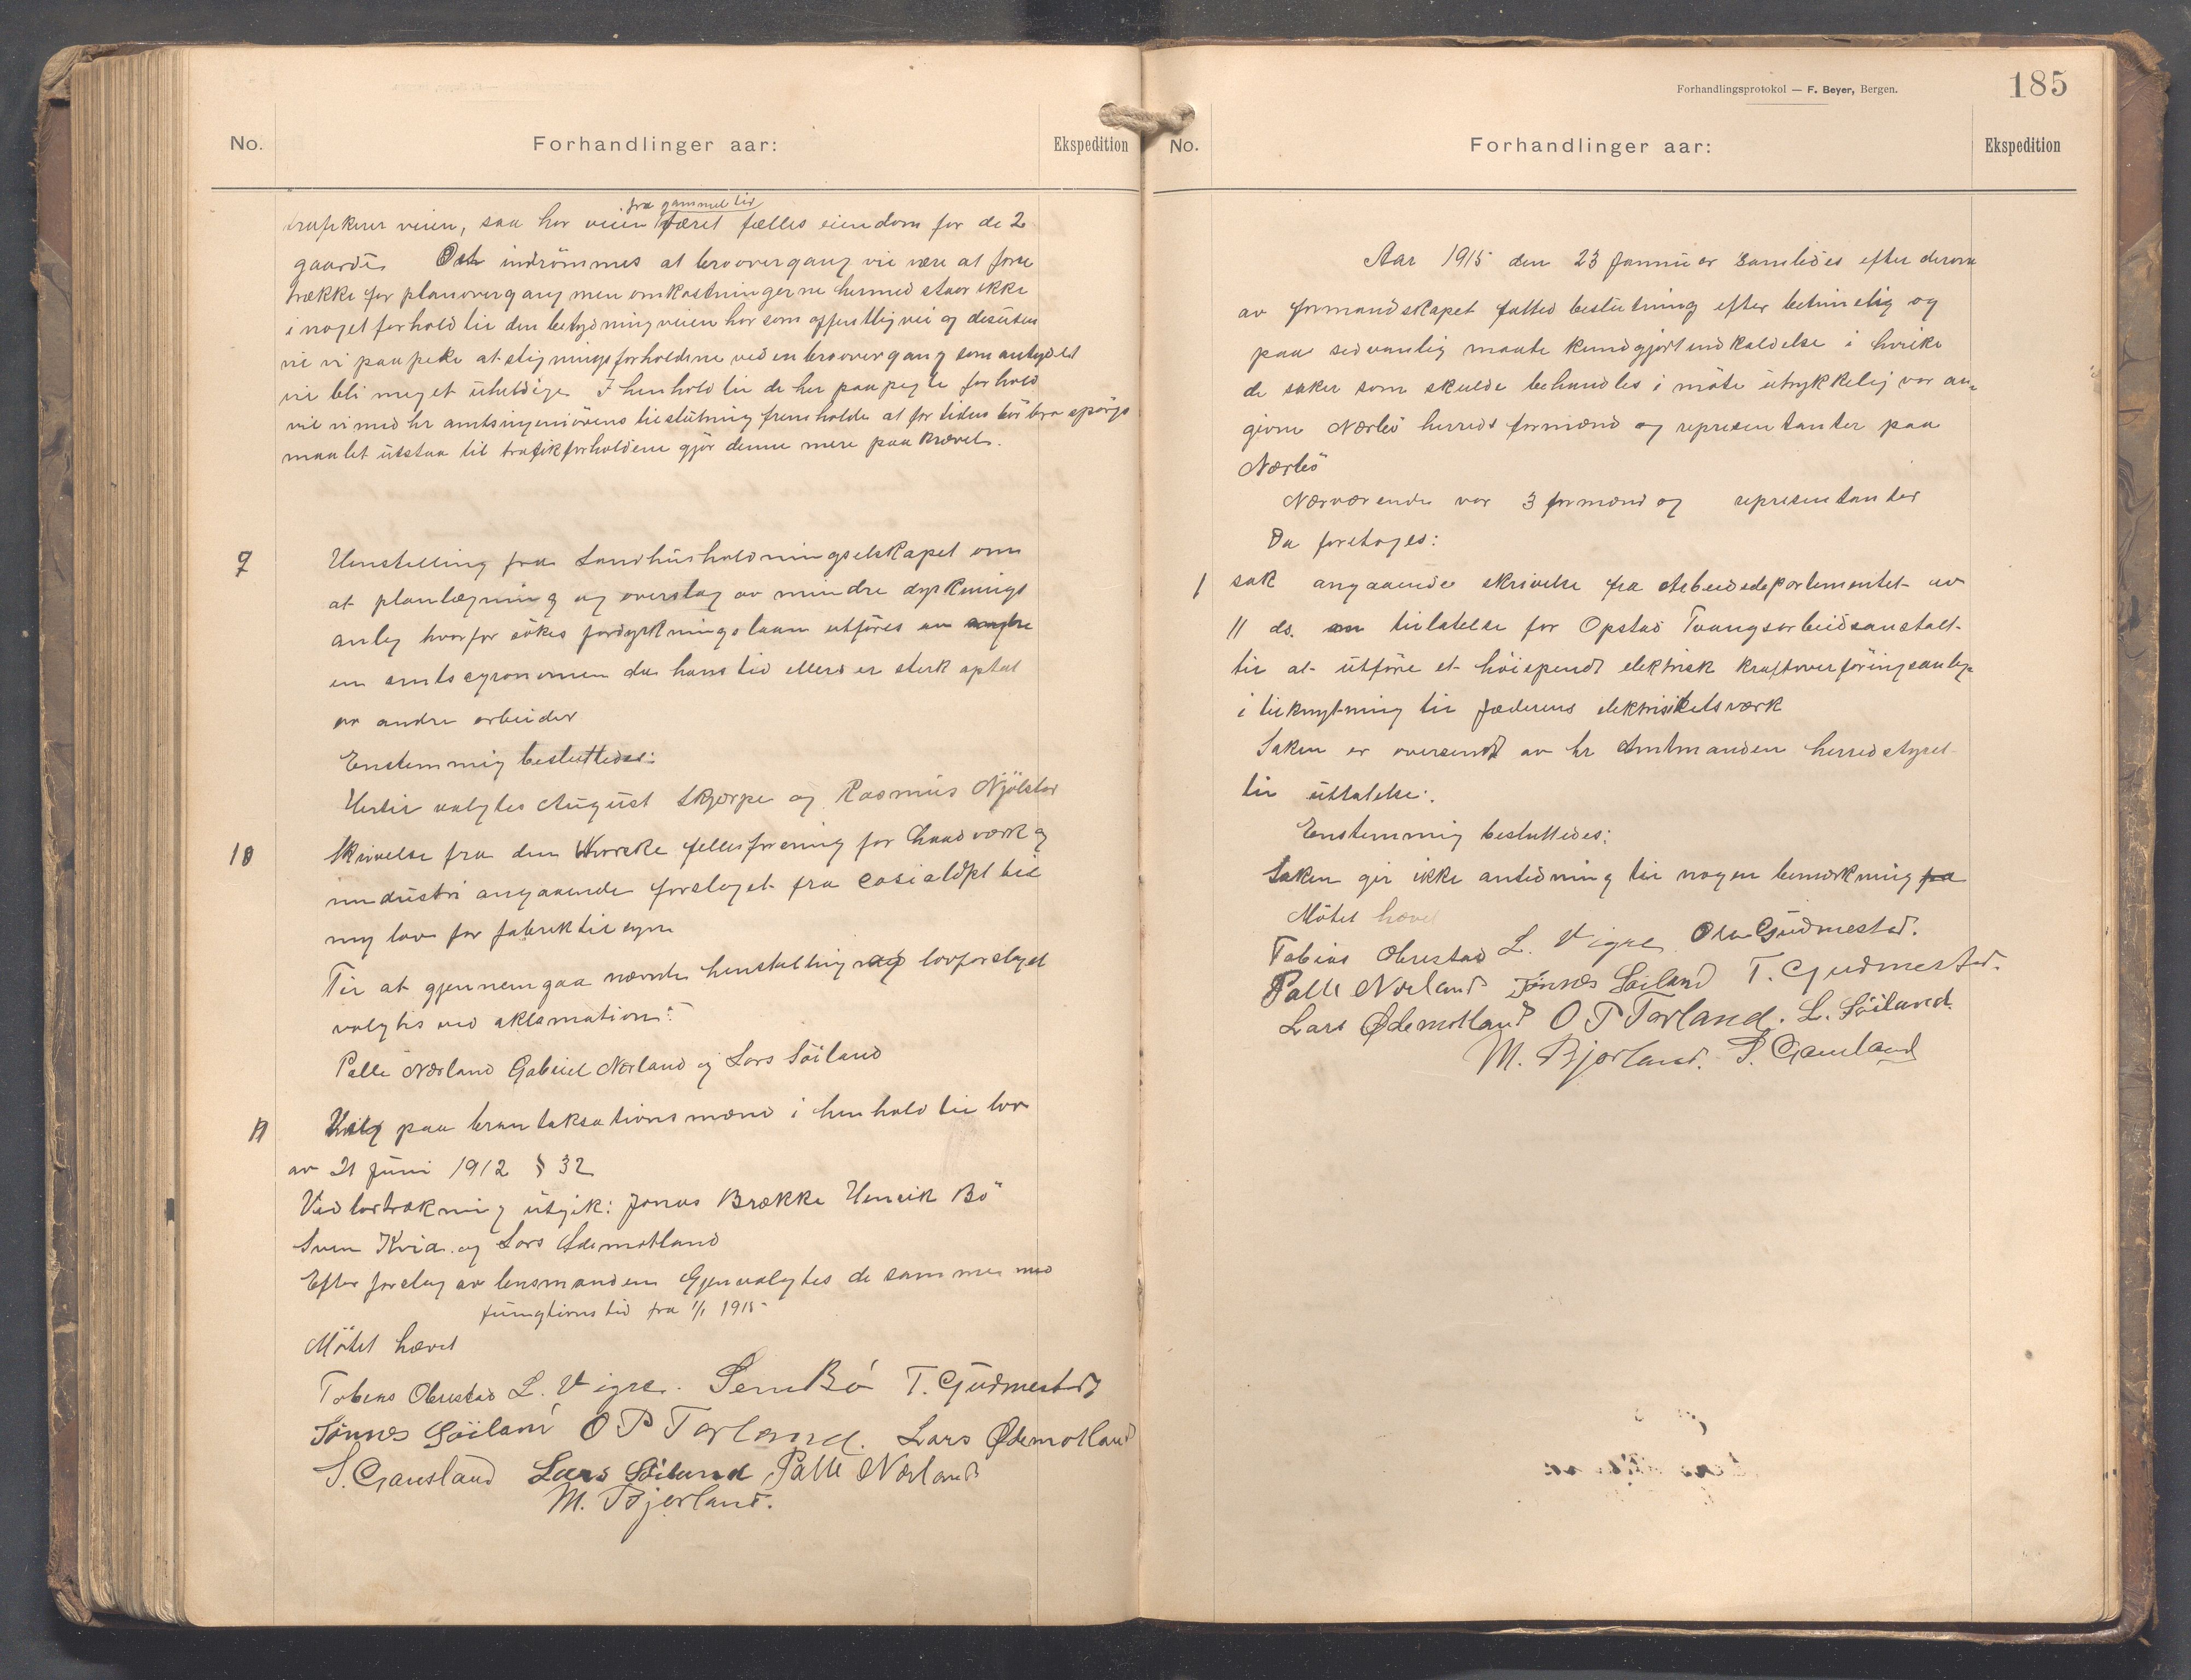 No.
Forhandlinger aar:
Ekspedition
trafikerer veien, saa har veien fra gammel tid været fælles eiendom for de 2
gaarde. Det indrömmes at broovergang vil være at fore
trække for planovergang men omkostningerne hermed staar ikke
i noget forhold til den betydning veien har som offentlig vei og desuten
vil vi paapeke at stigningsforholdene ved en broovergang som antydet
vil bli meget uheldige. I henhold til de her paapegte forhold
vil vi med hr amtsingeniörens tilslutning fremholde at for tiden bör bro spörgs
maalet utstaa til trafikforholdene gjör denne mere paakrævet.
9
Henstilling fra Landhusholdningselskapet om
at planlægning og overslag av mindre dyrknings
anleg hvorfor sökes jordyrkningslaan utföres av andre
en amtsagronomen da hans tid ellers er sterk optat
av andre arbeider
Enstemmig besluttedes:
Hertil valgtes August Skjærpe og Rasmus Njölstad
10
Skrivelse fra den Norske fellesforening for haandværk og
industri angaaende forslaget fra Socialdpt til
ny lov for fabriktilsyn
Til at gjennemgaa nævnte henstilling og lovforslaget
valgtes ved aklamation:
Palle Nærland Gabriel Nærland og Lars Söiland
11
Valg paa brantaksationsmænd i henhold til lov
av 21 Juni 1912 § 32
Ved lodtrækning utgik: Jonas Brække Henrik Bö
Sven Kvia og Lars Ødemotland
Efter forslag av lensmanden Gjenvalgtes de samme med
fungtions tid fra 1/1 1915
Mötet hævet
Tobias Obrestad L. Vigre. Sem Bö T. Gudmestad
Tönnes Söiland O P Torland. Lars Ødemotland
S. Gausland Lars Söiland Palle Nærland
M. Bjorland.
Forhandlingsprotokol — F. Beyer, Bergen.
185
No.
Forhandlinger aar:
Ekspedition
Aar 1915 den 23 Januar samledes efter derom
av formandskapet fatted beslutning efter betimelig og
paa sedvanlig maate kundgjort indkaldelse i hvilke
de saker som skulde behandles i möte utrykkelig var an-
givne Nærbö herreds formænd og representanter paa
Nærbö
Nærværende var 3 formænd og representanter
Da foretoges:
1 sak angaaende skrivelse fra Arbeidsdepartementet av
11 ds. om tilatelse for Opstad Tvangsarbeidsanstalt
til at utföre et höispendt elektrisk kraftoverföringsanleg
i tilknytning til Jæderens elektrisitetsværk
Saken er oversendt av hr Amtmanden herredstyret
til uttalelse:
Enstemmig besluttedes:
Saken gir ikke anledning til nogen bemærkning fra
Mötet hævet
Tobias Obrestad L. Vigre Ola Gudmestad.
Palle Nærland Tönnes Söiland T. Gudmestad.
Lars Ødemotland O P Torland. L. Söiland.
M. Bjorland. S. Gausland